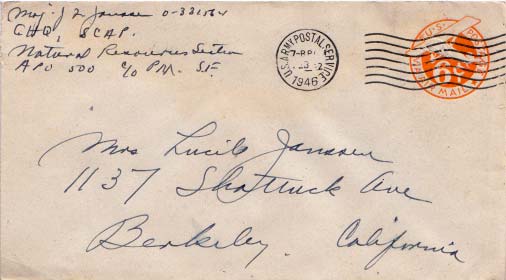 Maj. J L Janssen 0-331564
GHQ, SCAP.
Natural Resources Section
APO 500 c/o P.M. S.F.
U.S. ARMY POSTAL SERVICE
1946
U.S. POSTAGE
6c
AIR MAIL
Mrs Lucile Janssen
1137 Shattuck Ave
Berkeley. California